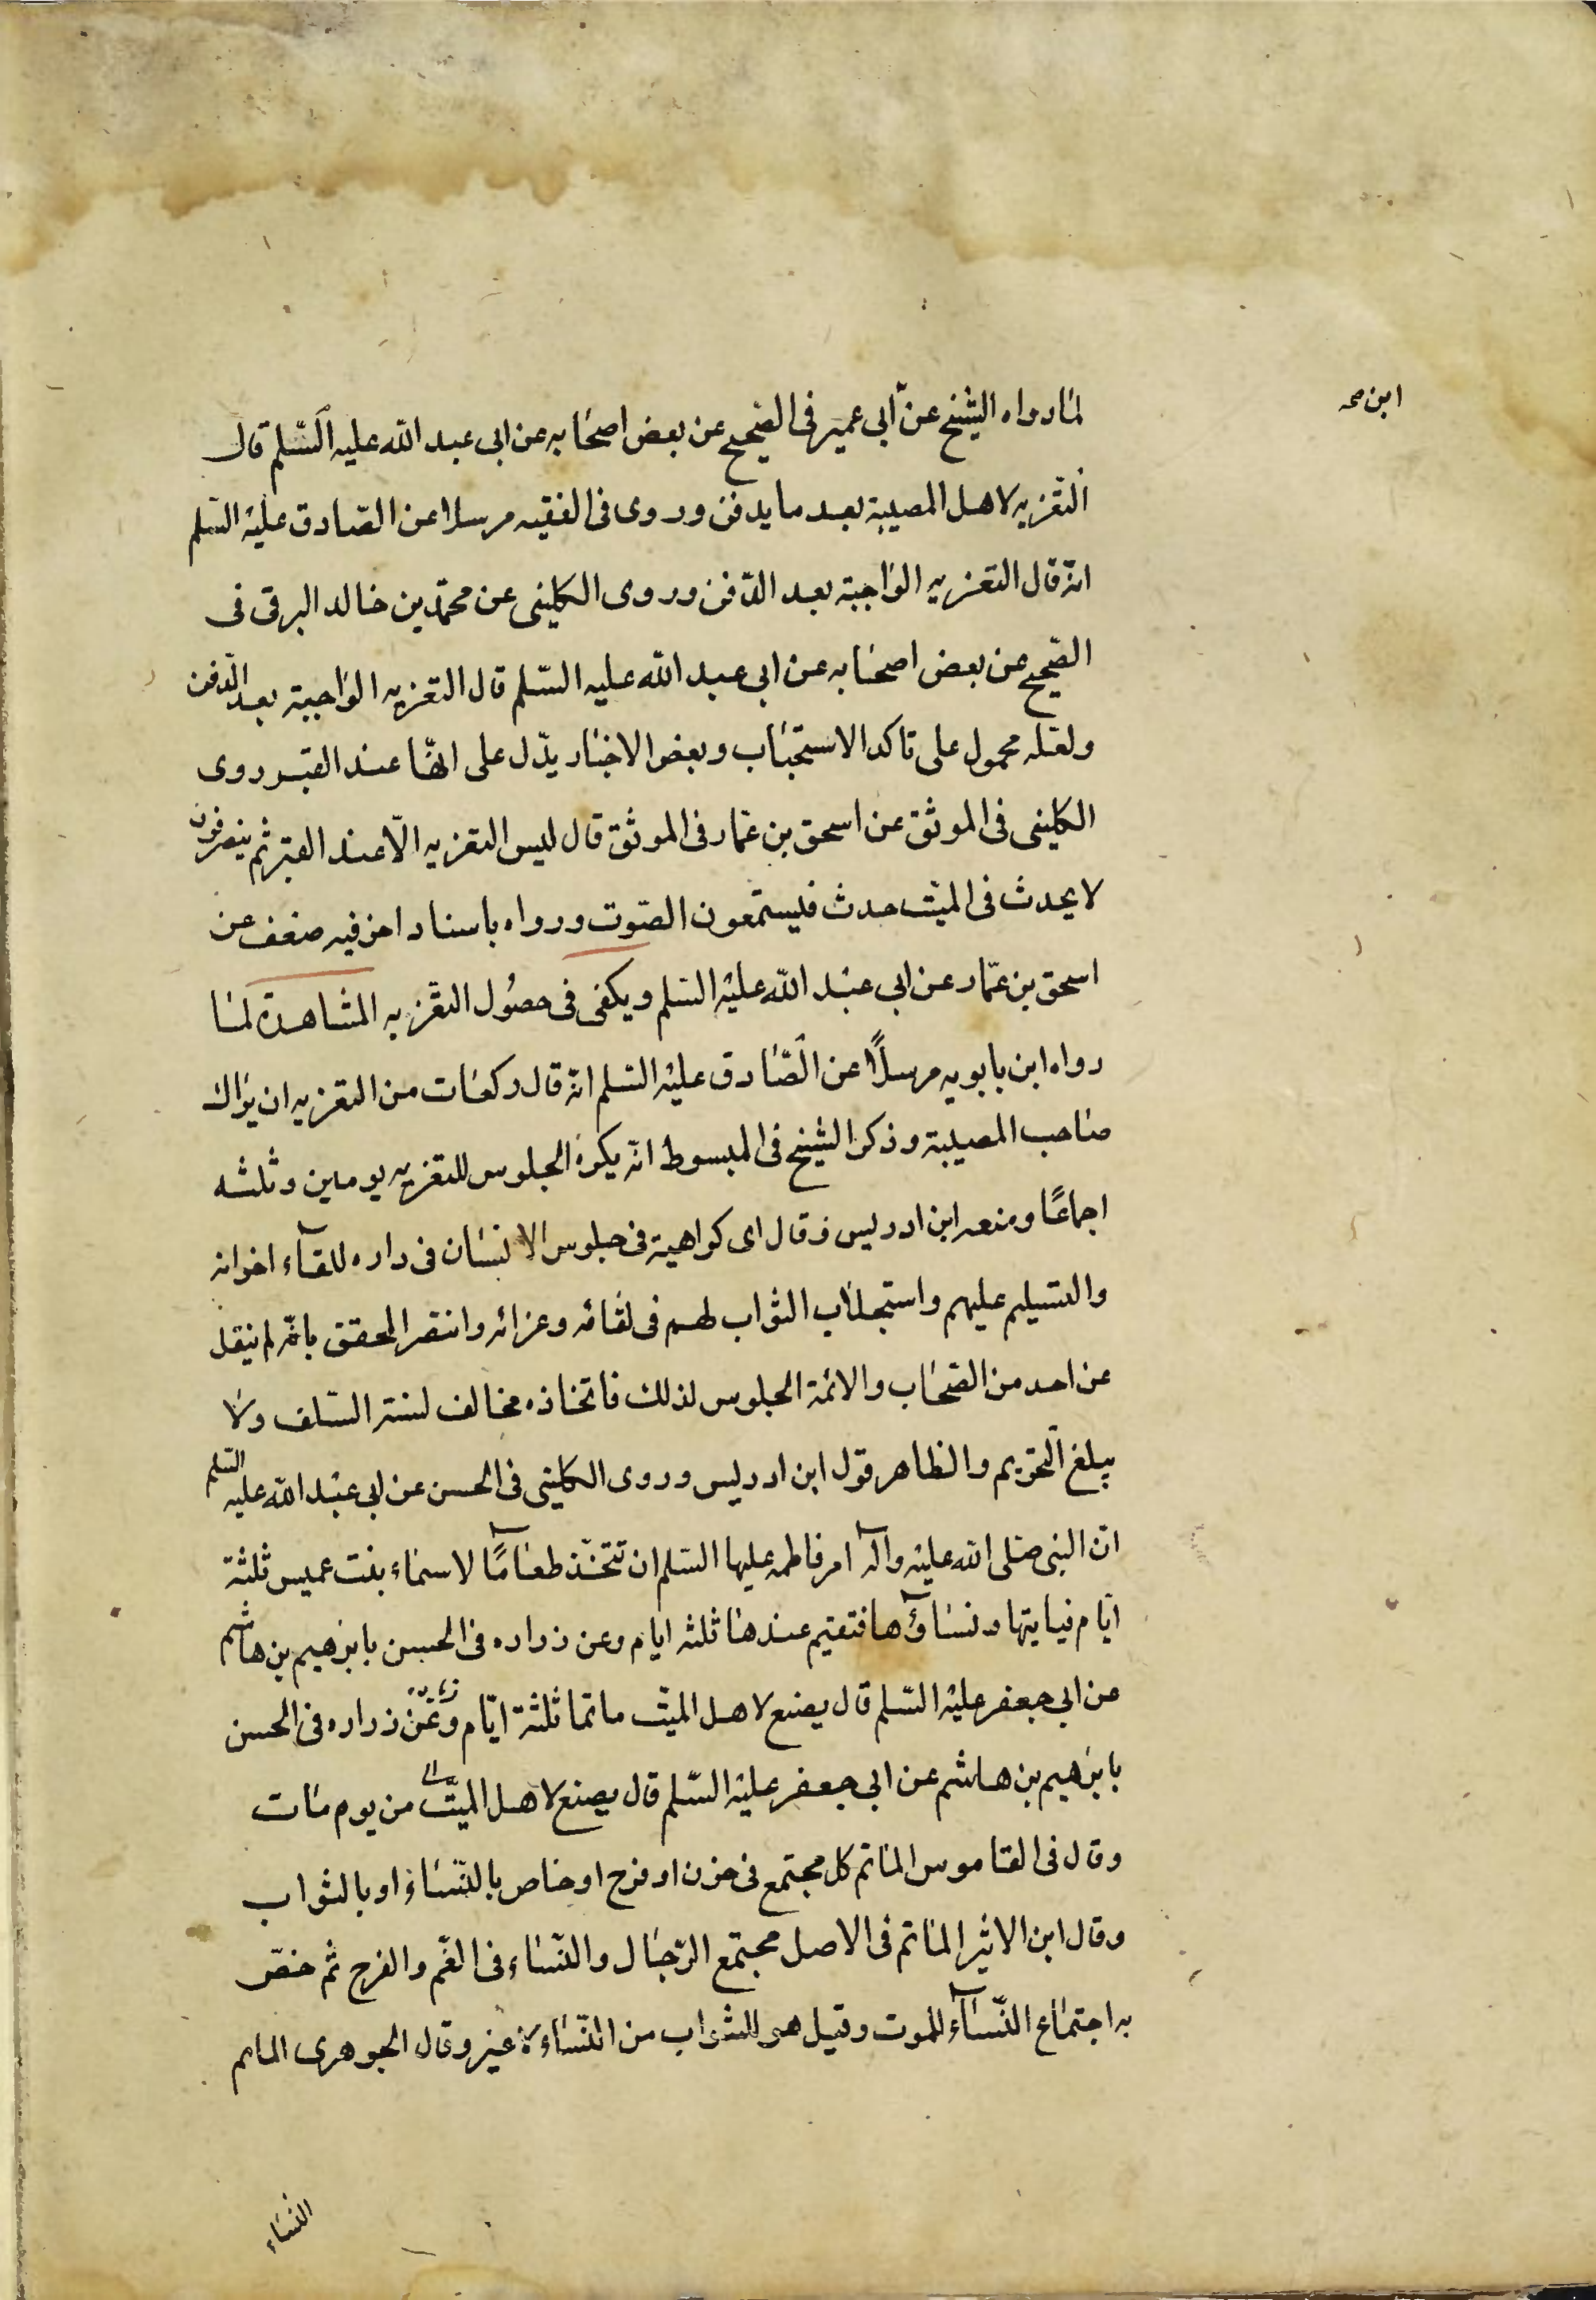 ابن صح
لما رواه الشيخ عن أبي عمير في الصحيح عن بعض اصحابه عن ابى عبد الله عليه السّلم قال
التّعزيه لاهل المصيبة بعد ما يدفن وروى فى الفقيه مرسلا عن الصّادق عليه السّلم
انّه قال التعزيه الواجبة بعد الدّفن وروى الكلينى عن محمّد بن خالد البرقى فى
الصّحيح عن بعض اصحابه عن ابى عبد الله عليه السّلم قال التعزيه الواجبة بعد الدّفن
ولعّله محمول على تاكد الاستحباب وبعض الاخبار يدّل على انّها عند القبر روى
الكلينى فى الموثق عن اسحق بن عمار فى الموثق قال ليس التعزيه الّا عند القبر ثم ينصرفون
لا يحدث فى الميّت حدث فيستمعون الصّوت ورواه باسناد اخر فيه ضعف عن
اسحق بن عمّار عن ابى عبد الله عليه السّلم ويكفى فى حصُول التعّزيه المشاهدة لما
رواه ابن بابويه مرسلاً عن الصّادق عليه السّلم انّه قال وكفاك من التعزيه ان يراك
صاحب المصيبة وذكر الشيخ فى المبسوط انّه يكره الجلوس للتعزيه يومين وثلثه
اجماعًا ومنعه ابن ادريس وقال اى كراهية فى جلوس الانسان فى داره للقآء اخوانه
والتسليم عليهم واستجلاب الثواب لهم فى لقائه وعزائه وانتصر المحقق بانّه لم ينقل
عن احد من الصّحاب والائمة الجلوس لذلك فاتخاذه مخالف لسنة السّلف ولا
يبلغ التّحريم والظاهر قول ابن ادريس وروى الكلينى فى الحسن عن ابى عبد الله عليه السّلم
انّ النبى صلى الله عليه وآله امر فاطمه عليها السّلم ان تتخّذ طعامًا لاسماء بنت عميس ثلثة
ايّام فياتيها ونساؤها فتقيم عندها ثلثه ايام وعن زراره فى الحسن بابرهيم بن هاشم
عن ابى جعفر عليه السّلم قال يصنع لاهل الميّت ماتما ثلثة ايّام وعن زراره فى الحسن
بابرهيم بن هاشم عن ابى جعفر عليه السّلم قال يصنع لاهل الميّت من يوم مات
وقال فى القاموس الماتم كل مجتمع فى حزن او فرح او خاص بالنّساء او بالشواب
وقال ابن الاثير الماتم فى الاصل مجتمع الرّجال والنّساء فى الغّم والفرح ثم خصّ
به اجتماع النّسآء للموت وقيل هى للشواب من النّساء لا غير وقال الجوهرى الماتم
النساء